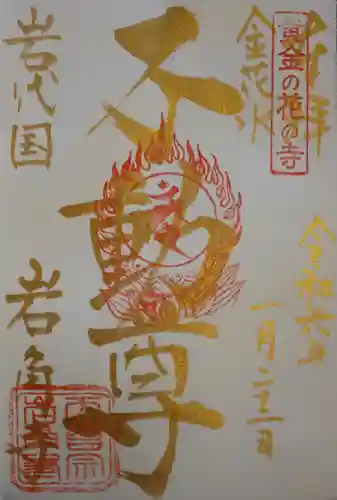 奉拝
黄金の花の寺
金花水
令和六年
一月二十一日
不動尊
岩代国
岩角寺